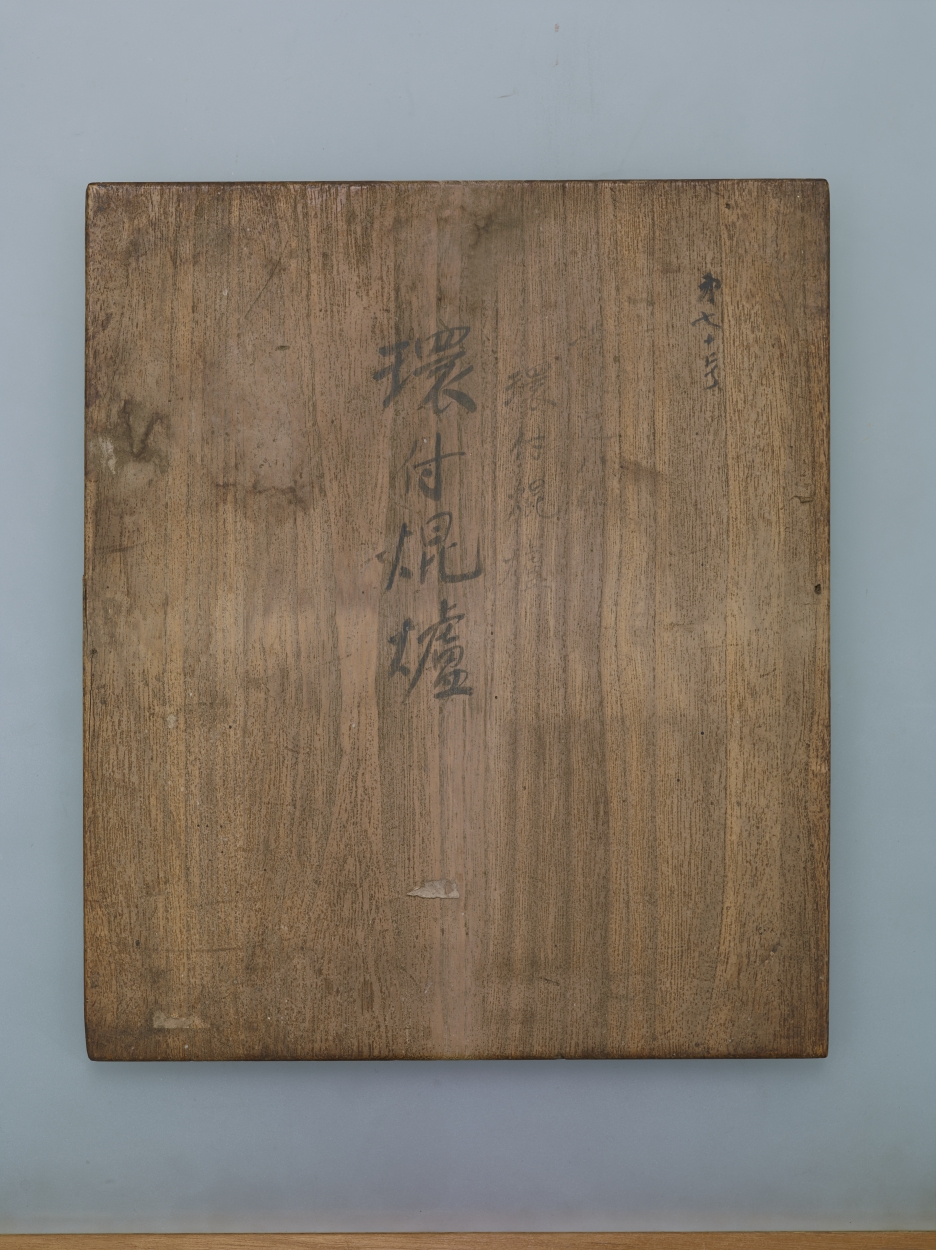 第七十号
環付焜爐
環付焜爐